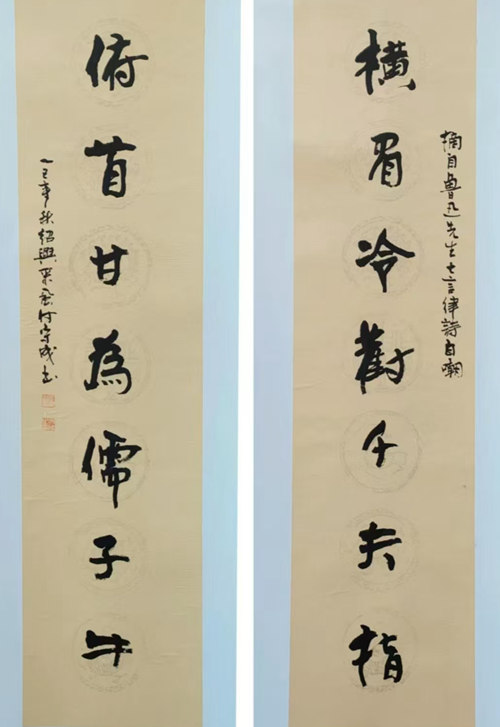 摘自魯迅先生七言律詩自嘲
橫眉冷對千夫指
俯首甘為儒子牛
年秋紹興守成書